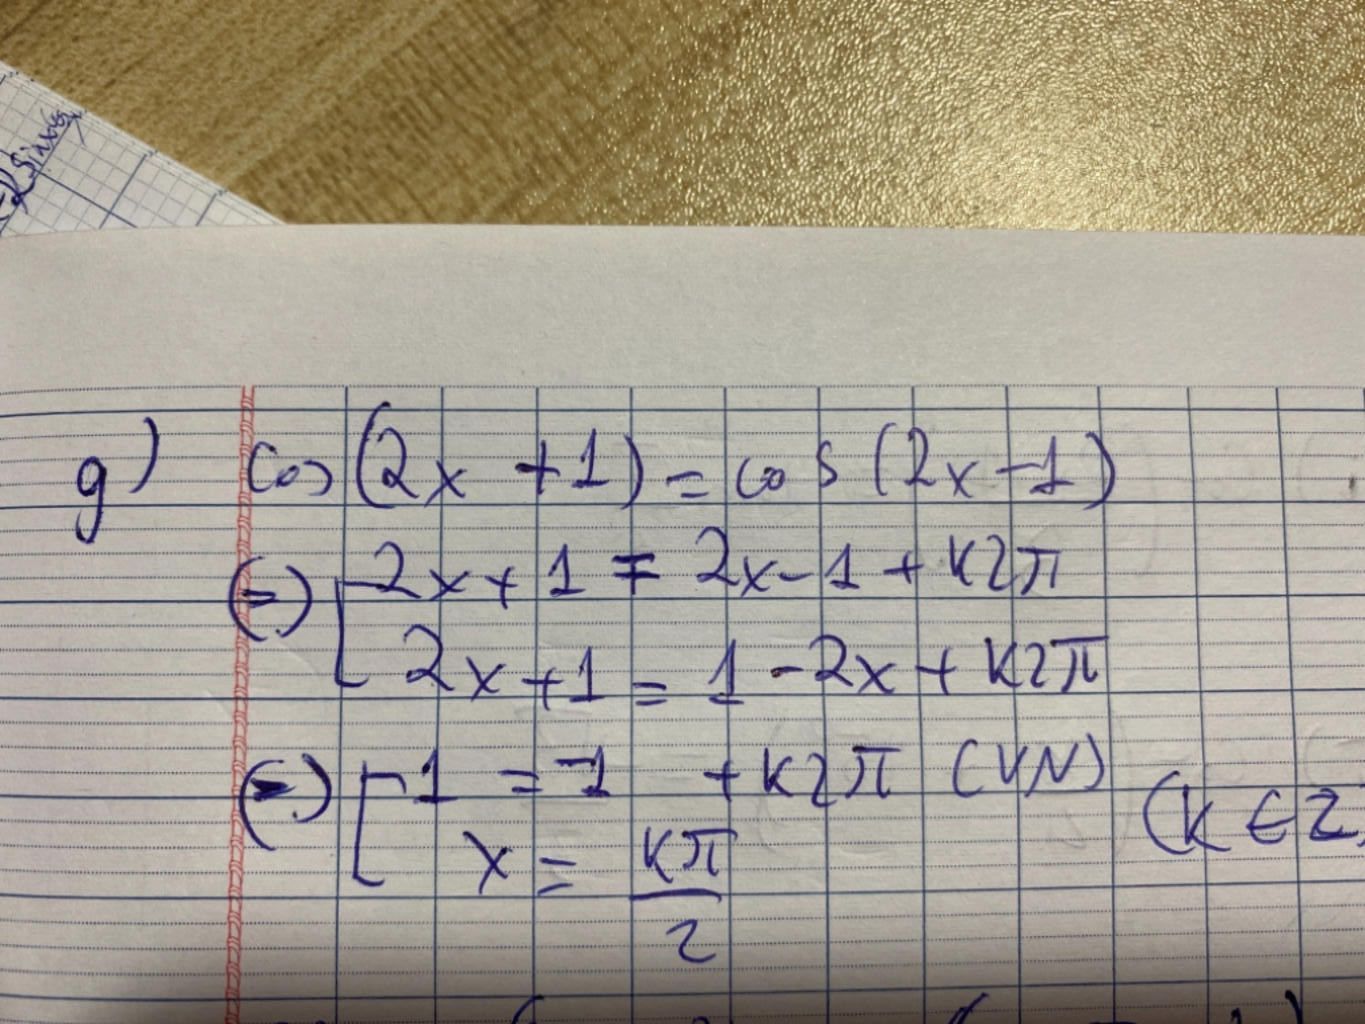 2sinx
g) cos (2x + 1) = cos (2x - 1)
(=) [ 2x + 1 = 2x - 1 + k2π
2x + 1 = 1 - 2x + k2π
(=) [ 1 = -1 + k2π (VN)
x = kπ/2 (k ∈ Z)